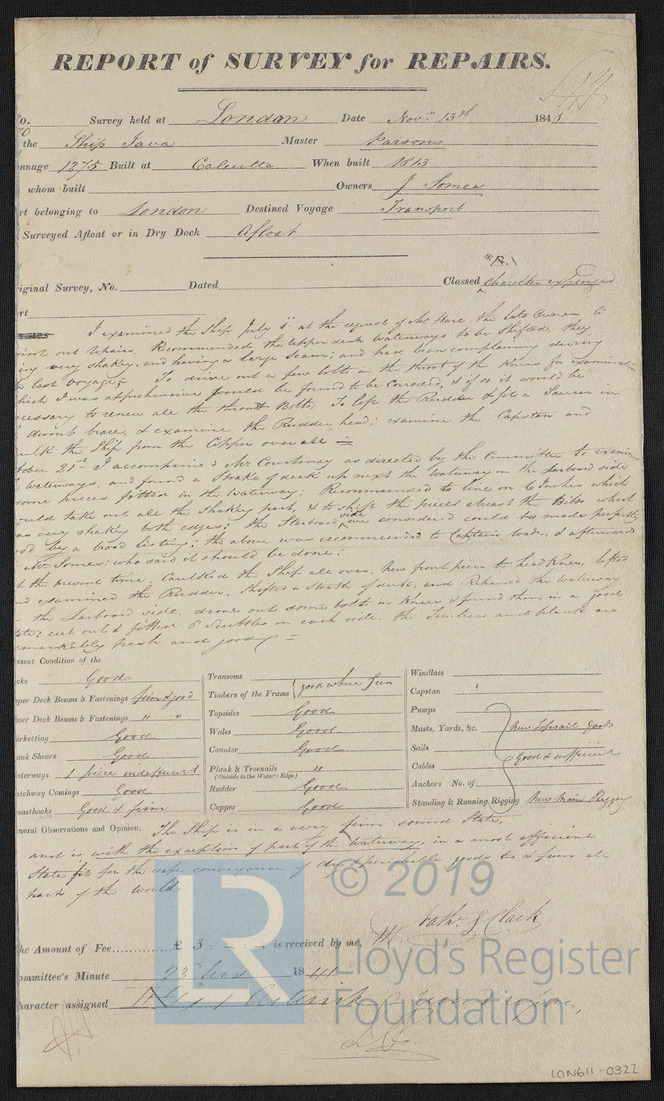 REPORT of SURVEY for REPAIRS.
o. Survey held at London Date Novr. 13th 1841
the Ship Java Master Parsons
nnage 1275 Built at Calcutta When built 1813
whom built Owners J Somes
rt belonging to London Destined Voyage Transport
Surveyed Afloat or in Dry Dock Afloat
iginal Survey, No. Dated Classed Character expunged
rt
I examined the Ship July at the request of Mr Hare the late Owner to
out repairs. Recommended the upper deck Waterways to be Shifted, they
very shakey, and having a large Seam; and had been complaining during
last Voyage; To drive out a few bolts in the throat of the Knees for examination
hich I was apprehensive would be found to be Corroded, & if so it would be
cessary to renew all the throat Bolts; To the Rudder & a in
brace, & examine the Rudder head; examine the Capstan and
ulk the Ship from the Copper over all =
tober 21st I accompanied Mr Courtenay as directed by the Committee to examine
Waterways, and found a Strake of deck up next the Waterway on the Larboard side
ome pieces fitted in the Waterway; Recommended to line on 6 Inches which
ould take out all the Shakey part, & to Shift the pieces abreast the Bitts which
as very shakey both edges; the Starboard side we considered could be made perfectly
by a broad listing; the above was recommended to Captain Wade, & afterward
Mr Somes: who said it should be done:
t the present time; Caulked the Ship all over, New front piece to head Knee, lifted
nd examined the Rudder, Shifted a Strake of deck, and Repaired the Waterway
the Larboard side, drove out some bolts in Knees & found them in a good
ate; cut out & fitted 8 Scuttles on each side. the Timbers and plank are
emarkably fresh and good; =
esent Condition of the
cks Good
pper Deck Beams & Fastenings firm & good
wer Deck Beams & Fastenings " "
irketting Good
ank Shears Good
aterways 1 piece indifferent
atchway Comings Good
reasthooks Good & firm
Transoms
Timbers of the Frame good where seen
Topsides Good
Wales Good
Counter Good
Plank & Treenails "
(Outside to the Water's Edge)
Rudder Good
Copper Good
Windlass
Capstan
Pumps
Masts, Yards, &c. New Topsail Yard
Sails
Cables Good & sufficient
Anchors No. of
Standing & Running Rigging New Main Rigging
eneral Observations and Opinion, The Ship is in a very firm sound State,
and is with the exception of part of the Waterway, in a most efficient
State fit for the safe conveyance of dry & perishable goods to & from all
parts of the World.
he Amount of Fee £ 5 : - : - is received by me, Nathl. G Clark
ommittee's Minute 23 Novr 1841
haracter assigned
LR
© 2019
Lloyd's Register
Foundation
LON611-0322